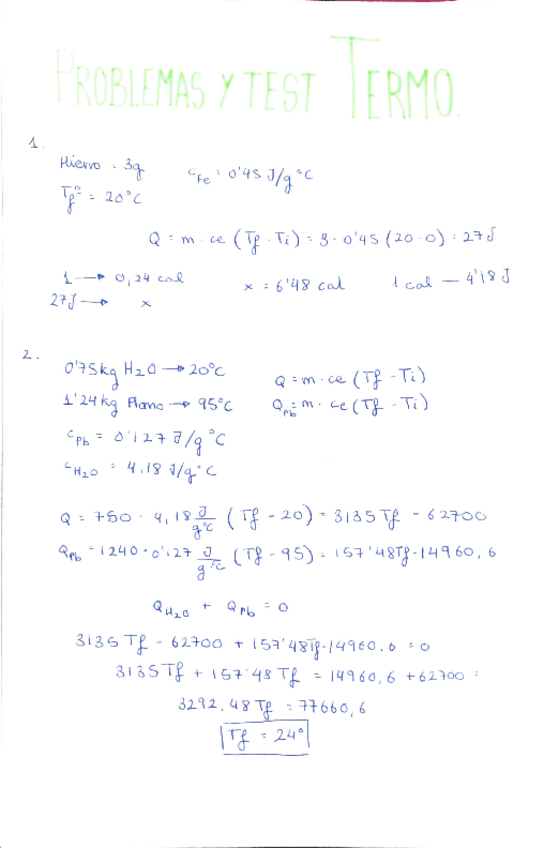 PROBLEMAS Y TEST TERMO.
1.
Hierro = 3g cFe = 0'45 J/g°C
Tfª = 20°C
Q = m · ce (Tf - Ti) = 3 · 0'45 (20-0) = 27J
1 → 0,24 cal x = 6'48 cal 1 cal — 4'18 J
27J → x
2.
0'75kg H2O → 20°C Q = m · ce (Tf - Ti)
1'24kg Plomo → 95°C QPb = m · ce (Tf - Ti)
cPb = 0'127 J/g°C
cH2O = 4,18 J/g°C
Q = 750 · 4,18 J/g°C (Tf - 20) = 3135 Tf - 62700
QPb = 1240 · 0'127 J/g°C (Tf - 95) = 157'48Tf - 14960,6
QH2O + QPb = 0
3135 Tf - 62700 + 157'48Tf - 14960.6 = 0
3135 Tf + 157'48 Tf = 14960,6 + 62700 =
3292,48 Tf = 77660,6
Tf = 24°